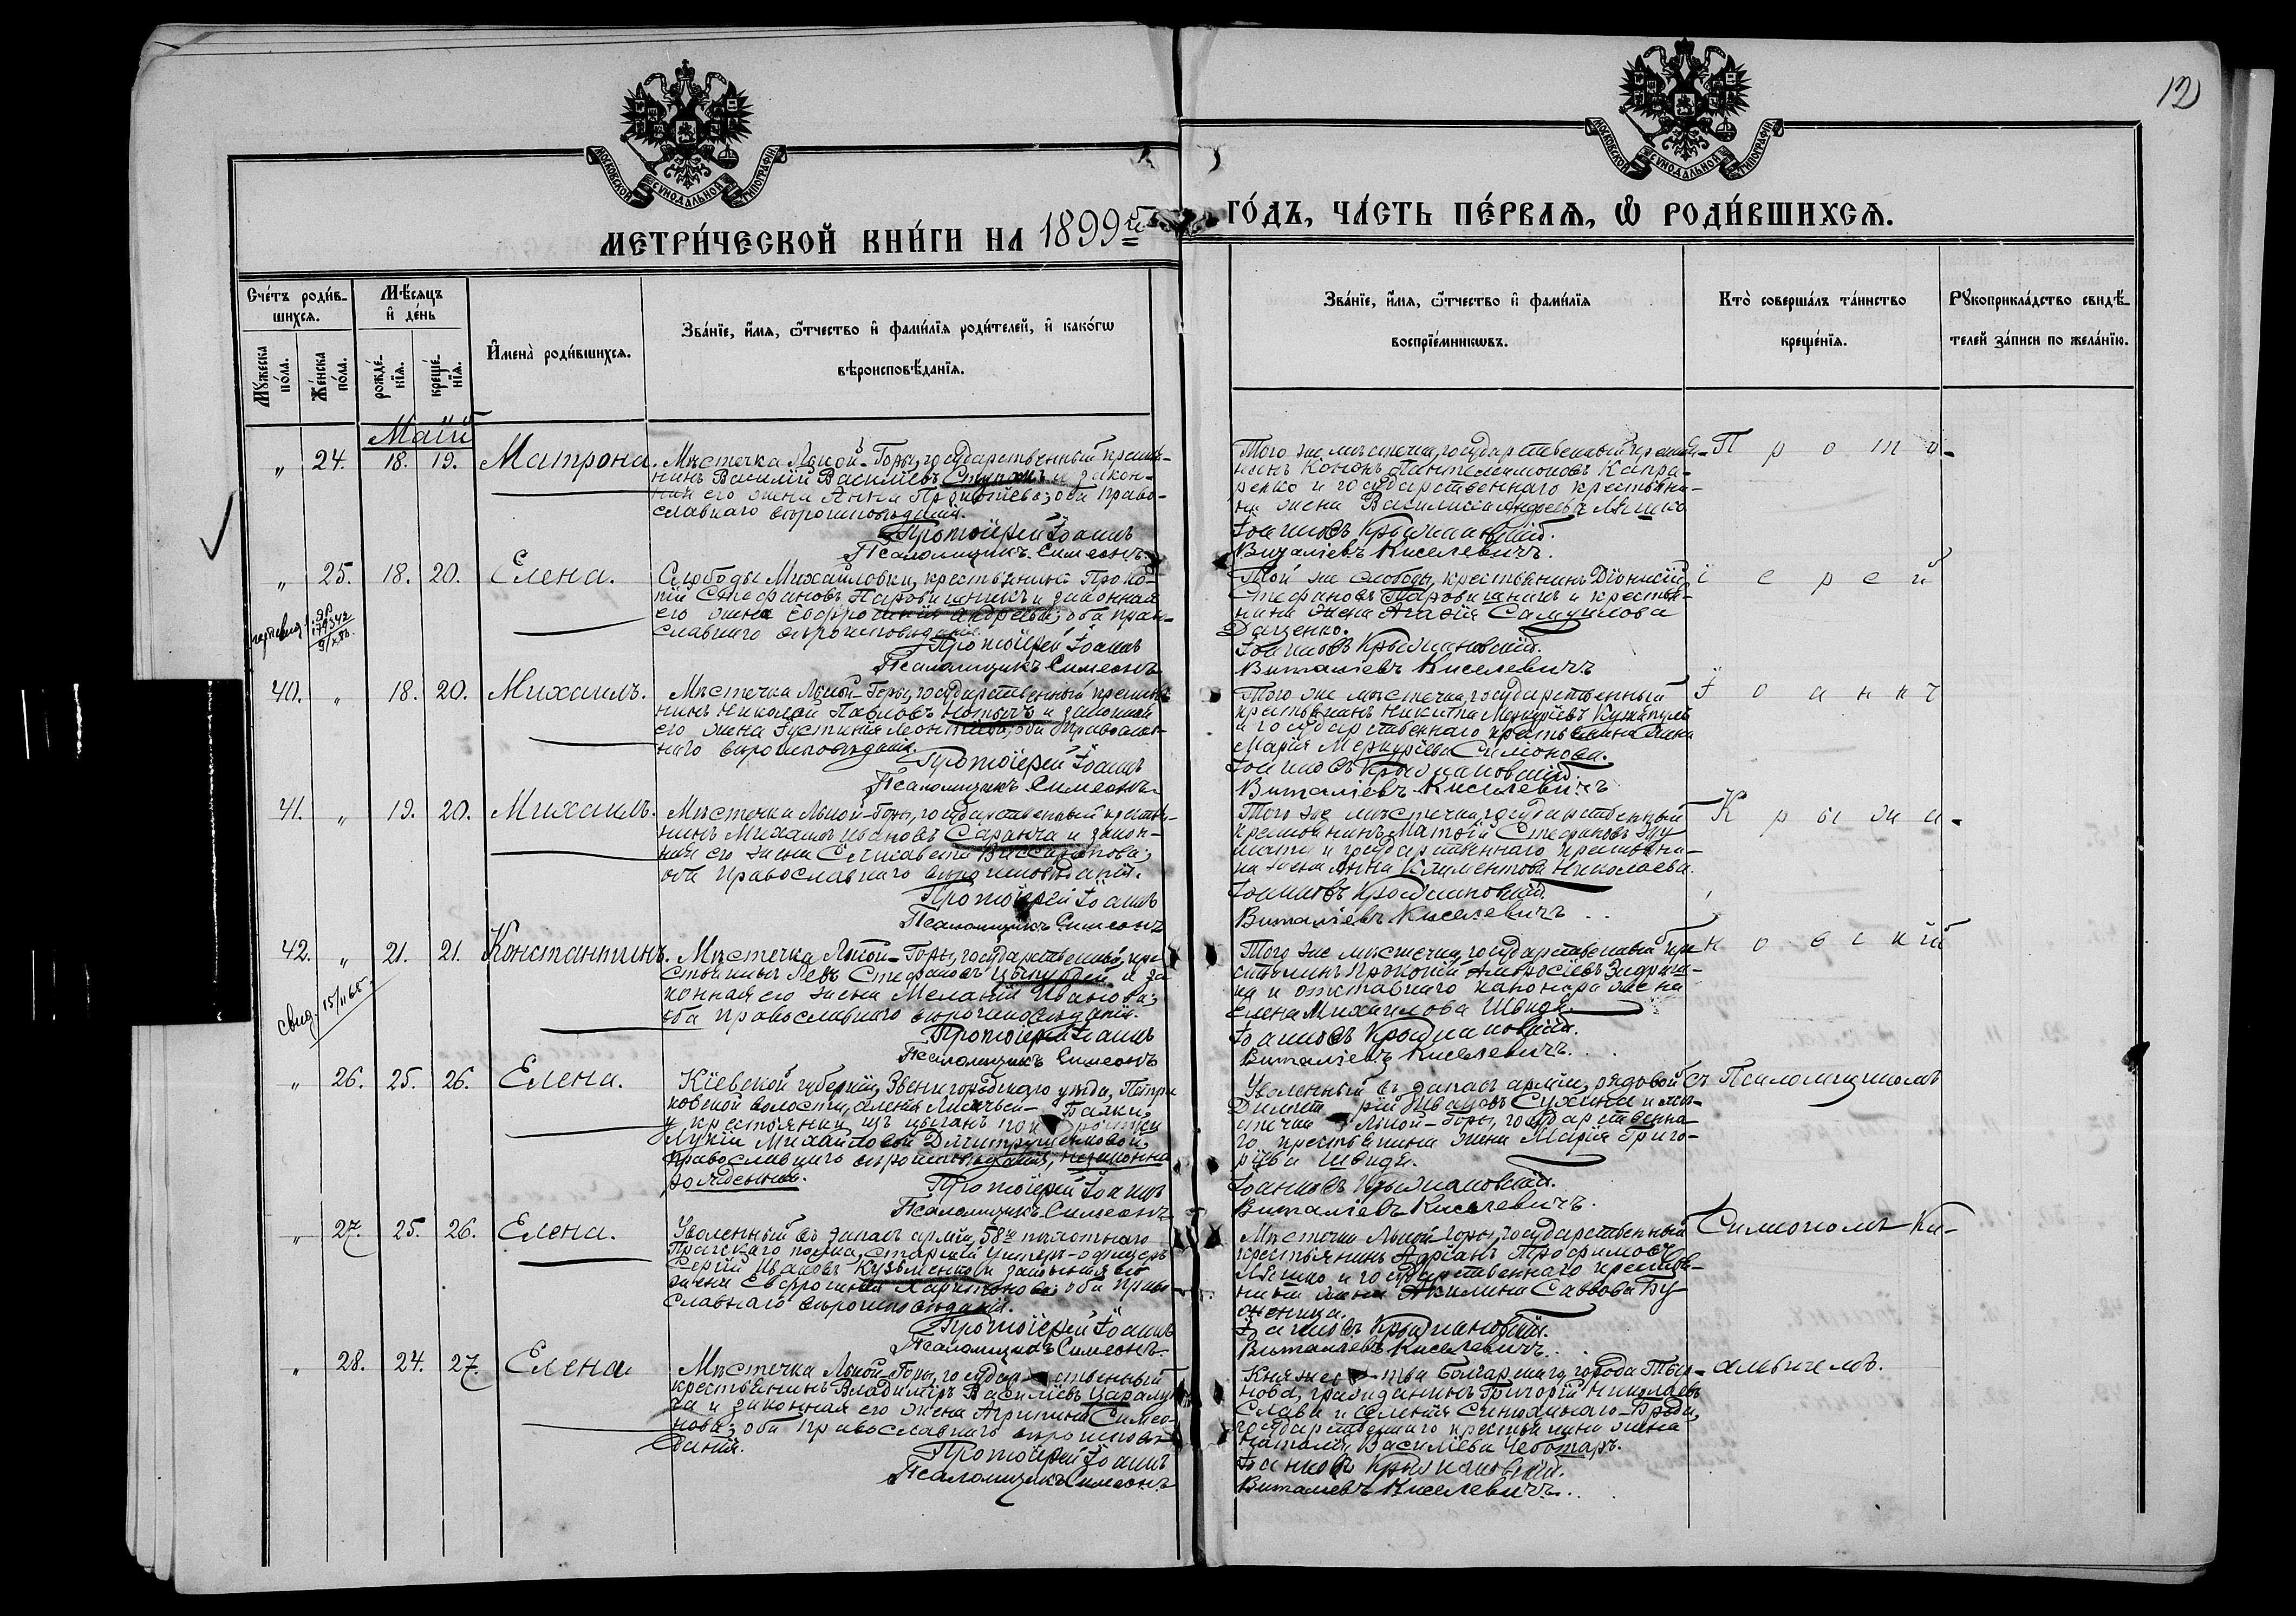 12
МОСКОВСКОЙ СУНОДАЛЬНОЙ ТИПОГРАФІИ
МОСКОВСКОЙ СУНОДАЛЬНОЙ ТИПОГРАФІИ
МЕТРИ́ЧЕСКОЙ КНИ́ГИ НА 1899й
ГО́ДЪ, ЧА́СТЬ ПЕ́РВАѦ, Ѿ РОДИ́ВШИХСѦ.
Сче́тъ роди́в-
шихся.
Мꙋжеска по́ла.
Же́нска по́ла.
Мѣ́сяцъ
и҆ де́нь
рожде́-
нїя.
креще́-
нїя.
И҆мена̀ роди́вшихся.
Зва́нїе, и҆́мя, ѻ҆́тчество и҆ фами́лїя роди́телей, и҆ како́гѡ
вѣроисповѣ́данїя.
Зва́нїе, и҆́мя, ѻ҆́тчество и҆ фами́лїя
воспрїе́мникѡвъ.
Кто̀ соверша́лъ та́инство
креще́нїя.
Рꙋкоприкла́дство свидѣ́-
телей за́писи по жела́нїю.
Маій
„ 24. 18. 19. Матрона. Мѣстечка Лысой-Горы, государственный крестья-
нинъ Василій Васильевъ и закон-
ная его жена Анна оба право-
славнаго вѣроисповѣданія.
Протоіерей Іоаннъ
Псаломщикъ Симеонъ
Того же мѣстечка, государственный крестья-
нинъ Кононъ Пантелеимоновъ Капра-
ренко и государственнаго крестьяни-
на жена Василиса Андреева Ляшко
Іоанновъ Крыжановскій.
Виталіевъ Киселевичъ.
„ 25. 18. 20. Елена. Слободы Михайловки, крестьянинъ Проко-
пій Стефановъ и законная
его жена Евфросинія Андреева; оба право-
славнаго вѣроисповѣданія.
Протоіерей Іоаннъ
Псаломщикъ Симеонъ
Той же слободы, крестьянинъ Діонисій
Стефановъ и крестья-
нина жена Агафія Самуилова
Даценко.
Іоанновъ Крыжановскій.
Виталіевъ Киселевичъ
40. „ 18. 20. Михаилъ. Мѣстечка Лысой-Горы, государственный крестья-
нинъ Николай Павловъ и законная
его жена Іустинія Леонтіева; оба православ-
наго вѣроисповѣданія.
Протоіерей Іоаннъ
Псаломщикъ Симеонъ
Того же мѣстечка, государственный
крестьянинъ Никита Меркуріевъ
и государственнаго крестьянина жена
Марія Меркуріева Симонова.
Іоанновъ Крыжановскій.
Виталіевъ Киселевичъ
41. „ 19. 20. Михаилъ. Мѣстечка Лысой-Горы, государственный крестья-
нинъ Михаилъ Ивановъ Саранча и закон-
ная его жена Елисавета Виссаріонова;
оба православнаго вѣроисповѣданія.
Протоіерей Іоаннъ
Псаломщикъ Симеонъ
Того же мѣстечка, государственный
крестьянинъ Матѳій Стефановъ
и государственнаго крестьяни-
на жена Анна Климентова Николаева.
Іоанновъ Крыжановскій.
Виталіевъ Киселевичъ
42. „ 21. 21. Константинъ. Мѣстечка Лысой-Горы, государственный кре-
стьянинъ Левъ Стефановъ и за-
конная его жена Меланія Иванова;
оба православнаго вѣроисповѣданія.
свид. 15/II 65.
Протоіерей Іоаннъ
Псаломщикъ Симеонъ
Того же мѣстечка, государственный кре-
стьянинъ Прокопій Амвросіевъ
и отставнаго канонира жена
Елена Михаилова Швидя.
Іоанновъ Крыжановскій.
Виталіевъ Киселевичъ.
„ 26. 25. 26. Елена. Кіевской губерніи, Звенигородскаго уѣзда,
ковской волости, селенія Лисичьей-Балки,
у крестьянки изъ цыганъ
Лукіи Михайловой
православнаго вѣроисповѣданія, незаконно
рожденная.
Протоіерей Іоаннъ
Псаломщикъ Симеонъ
Уволенный въ запасъ арміи, рядовой
Димитрій Ивановъ Сухина и мѣ-
стечка Лысой-Горы, государственна-
го крестьянина жена Марія Григо-
рьева Швидя.
Іоанновъ Крыжановскій.
Виталіевъ Киселевичъ.
„ 27. 25. 26. Елена. Уволенный въ запасъ арміи, 58го пѣхотнаго
Прагскаго полка, старшій унтеръ-офицеръ
Сергій Ивановъ Кузьменко и законная его
жена Евфросинія Харитонова; оба право-
славнаго вѣроисповѣданія.
Протоіерей Іоаннъ
Псаломщикъ Симеонъ
Мѣстечка Лысой-Горы, государственный
крестьянинъ Адріанъ Трофимовъ
Ляшко и государственнаго крестья-
нина жена Акилина Саввова

Іоанновъ Крыжановскій.
Виталіевъ Киселевичъ.
„ 28. 24. 27. Елена Мѣстечка Лысой-Горы, государственный
крестьянинъ Владиміръ Василіевъ
и законная его жена Агрипина Симео-
нова; оба православнаго вѣроисповѣ-
данія.
Протоіерей Іоаннъ
Псаломщикъ Симеонъ
Княжества Болгарскаго, города Тыр-
нова, гражданинъ Григорій Николаевъ
Слава и селенія Синюхинаго-Брода,
государственнаго крестьянина жена
Наталія Василіева Чеботарь.
Іоанновъ Крыжановскій.
Виталіевъ Киселевичъ.
Прото-
іерей
Іоаннъ
Крыжа-
новскій
съ Псаломщикомъ
Симеономъ Ки-